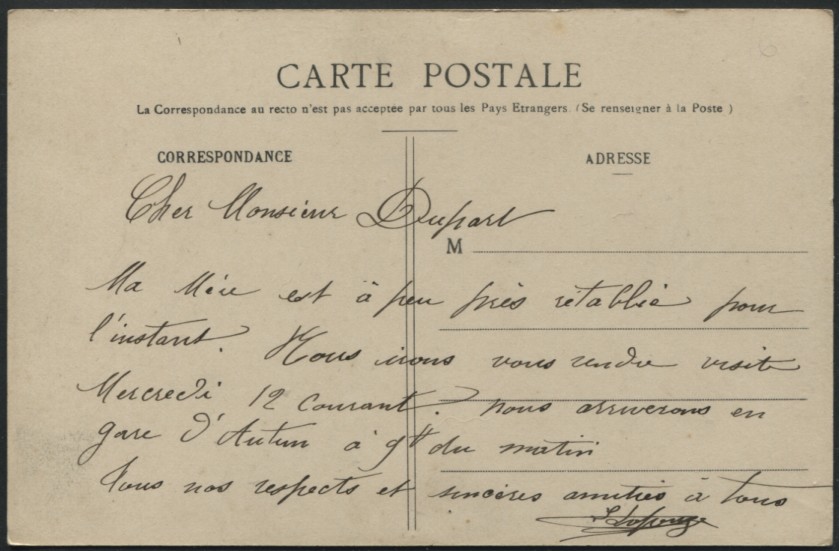 CARTE POSTALE
La Correspondance au recto n'est pas acceptée par tous les Pays Etrangers. (Se renseigner à la Poste)
CORRESPONDANCE
ADRESSE
Cher Monsieur Dupart
M
Ma Mère est à peu près rétablie pour
l'instant. Nous irons vous rendre visite
Mercredi 12 courant. nous arriverons en
gare d'Autun à 9h du matin
Tous nos respects et sincères amitiés à tous